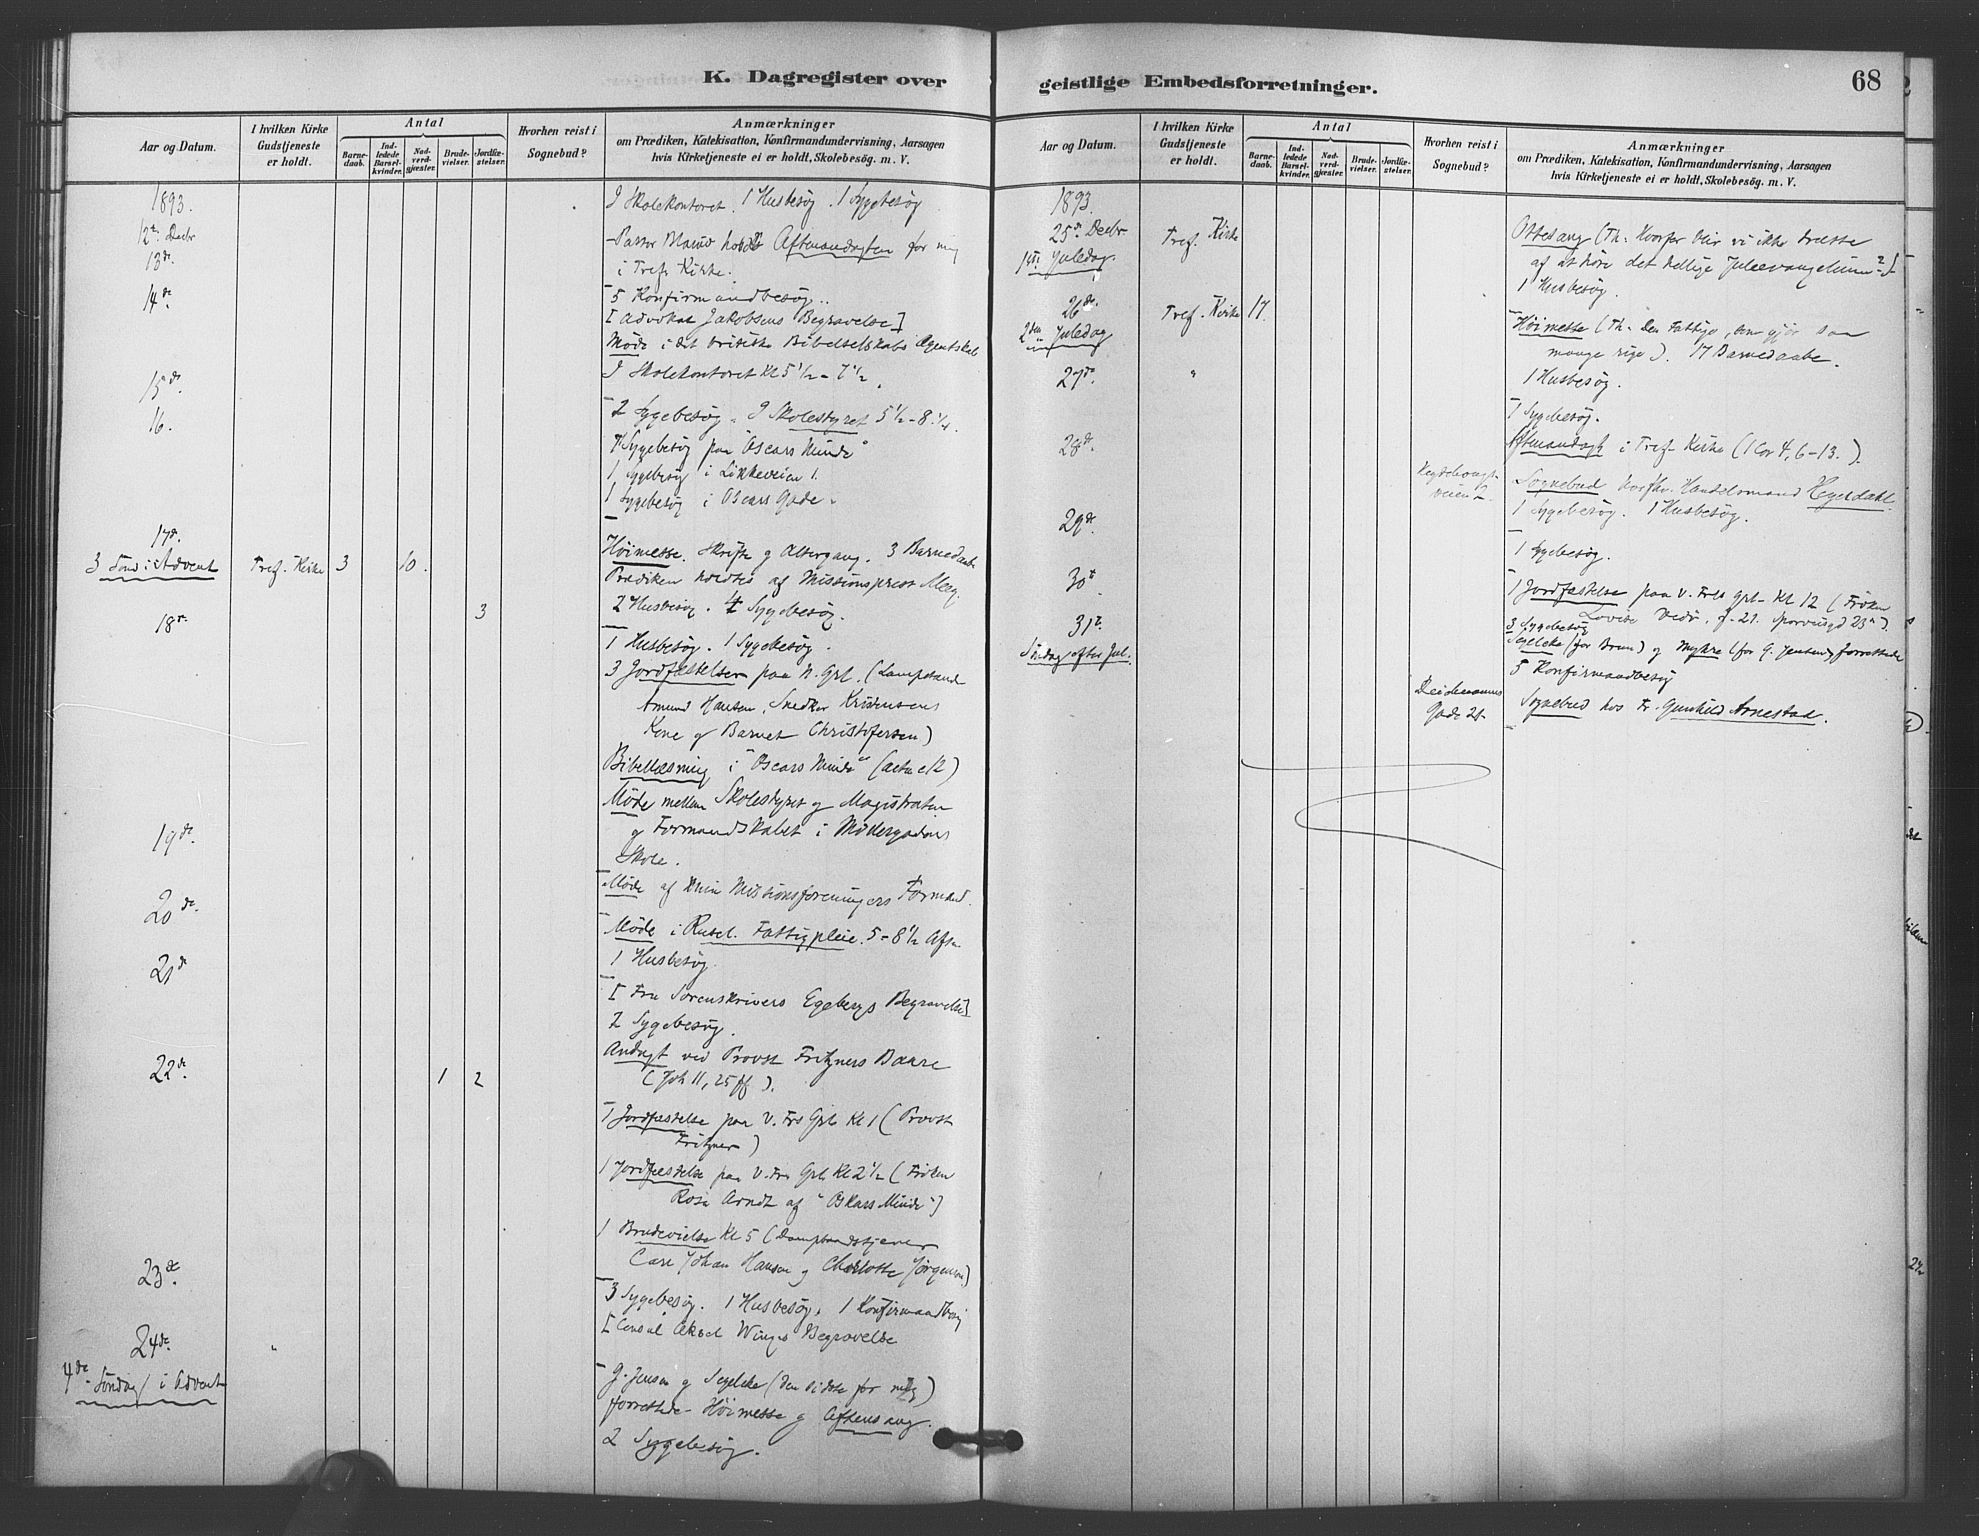 K. Dagregister over
Aar og Datum.
I hvilken Kirke Gudstjeneste er holdt.
Antal
Barnedaab.
Indledede Barselkvinder.
Nadverdgjæster.
Brudevielser.
Jordfæstelser.
Hvorhen reist i Sognebud?
Anmærkninger
om Prædiken, Katekisation, Konfirmandundervisning, Aarsagen
hvis Kirketjeneste ei er holdt, Skolebesög. m. V.
1893.
12te Decbr
I Skolekontoret. 1 Husbesøg. 1 Sygebesøg
13de
Pastor holdt Aftenandagten for mig
i Tref. Kirke.
14de
5 Konfirmandbesøg.
[Advokat Jakobsens Begravelse]
Møde i det britiske Bibelselskabs Agentskab
I Skolekontoret Kl 5 1/2 - 7 1/2.
15de
2 Sygebesøg. I Skolestyret 5 1/2 - 8 1/4.
16.
Sygebesøg paa "Oscars Minde"
1 Sygebesøg i Løkkeveien 1.
1 Sygebesøg i Oscars Gade.
17de
3 Sönd i Advent Tref. Kirke 3 10.
Høimesse. Skrifte og Altergang. 3 Barnedaab
Prædiken holdtes af Missionsprest
2 Husbesøg. Sygebesøg.
18de 3
1 Husbesøg. 1 Sygebesøg.
3 Jordfæstelser paa N. Grl. (
Amund Hansen, Snedker Kristensens
Kone og Barnet Christofersen)
Bibellæsning i "Oscars Minde" (
Møde mellem Skolestyret og Magistraten
og Formandskabet i Møllergadens
Skole.
19de
Møde af Missionsforeningers Formænd.
20de
Møde i Fattigpleie. 5 - 8 1/2 Aften
1 Husbesøg.
21de
[Fru Sorenskriver Egebergs Begravelse]
2 Sygebesøg.
Andagt ved Provst Fritzners Baare
(Joh 11, 25 ff).
22de 1 2
1 Jordfæstelse paa V. Frs Grl. Kl 1 (Provst
Fritzner)
1 Jordfæstelse paa V. Frs Grl. Kl 2 1/2 (Frøken
Rosa Arndt af "Oskars Minde")
1 Brudevielse Kl 5 (
Carl Johan Hansen og Charlotte Jørgensen)
23de
3 Sygebesøg. 1 Husbesøg. 1 Konfirmandbesøg
[Consul Aksel Winges Begravelse
24de "
4de Søndag i Advent
G. Jensen og Segelcke (den sidste for mig)
forrettede Høimesse og Aftensang.
2 Sygebesøg.
geistlige Embedsforretninger.
68
Aar og Datum.
I hvilken Kirke Gudstjeneste er holdt.
Antal
Barnedaab.
Indledede Barselkvinder.
Nadverdgjæster.
Brudevielser.
Jordfæstelser.
Hvorhen reist i Sognebud?
Anmærkninger
om Prædiken, Katekisation, Konfirmandundervisning, Aarsagen
hvis Kirketjeneste ei er holdt, Skolebesög. m. V.
1893.
25de Decbr Tref. Kirke
1ste Juledag.
Ottesang (Th: Hvorfor blir vi ikke trætte
af at høre det hellige Juleevangelium?)
1 Husbesøg.
26de Tref. Kirke 17.
2den Juledag
Høimesse (Th: Den Fattige, som gjør saa
mange rige). 17 Barnedaabe.
1 Husbesøg.
27de "
1 Sygebesøg.
Aftenandagt i Tref. Kirke (1 Cor 4, 6-13.)
28de
Sognebud hos Handelsmand Hegerdahl.
1 Sygebesøg. 1 Husbesøg.
29de
1 Sygebesøg.
30te
1 Jordfæstelse paa V. Frs Grl. Kl 12 (Frøken
Lovise
31te
Søndag efter Jul.
3 Sygebesøg
Segelcke (for Bruun) og Myhre (for G. Jensen) forrettede
5 Konfirmandbesøg
Deichmanns
Gade 21.
Sognebud hos Fr. Gunhild Arnestad.